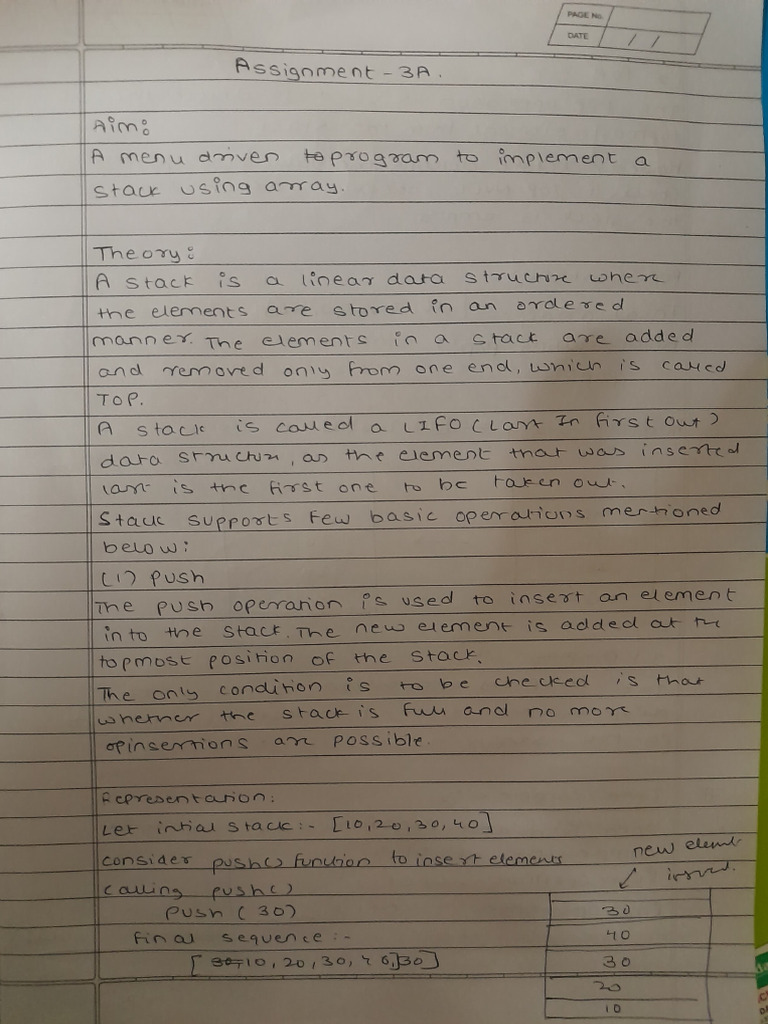 PAGE No.
DATE / /
Assignment - 3A.
Aim:
A menu driven to program to implement a
stack using array.
Theory:
A stack is a linear data structure where
the elements are stored in an ordered
manner. The elements in a stack are added
and removed only from one end, which is called
TOP.
A stack is called a LIFO (Last In first Out)
data structure, as the element that was inserted
last is the first one to be taken out.
Stack supports few basic operations mentioned
below:
(1) push
The push operation is used to insert an element
into the stack. The new element is added at the
topmost position of the stack.
The only condition is to be checked is that
whether the stack is full and no more
opinsertions are possible.
Representation:
Let intial stack:- [10,20,30,40]
consider push() function to insert elements
new element
calling push()
push (30)
final sequence:-
[30,10, 20, 30, 40]30]
30
40
30
20
10